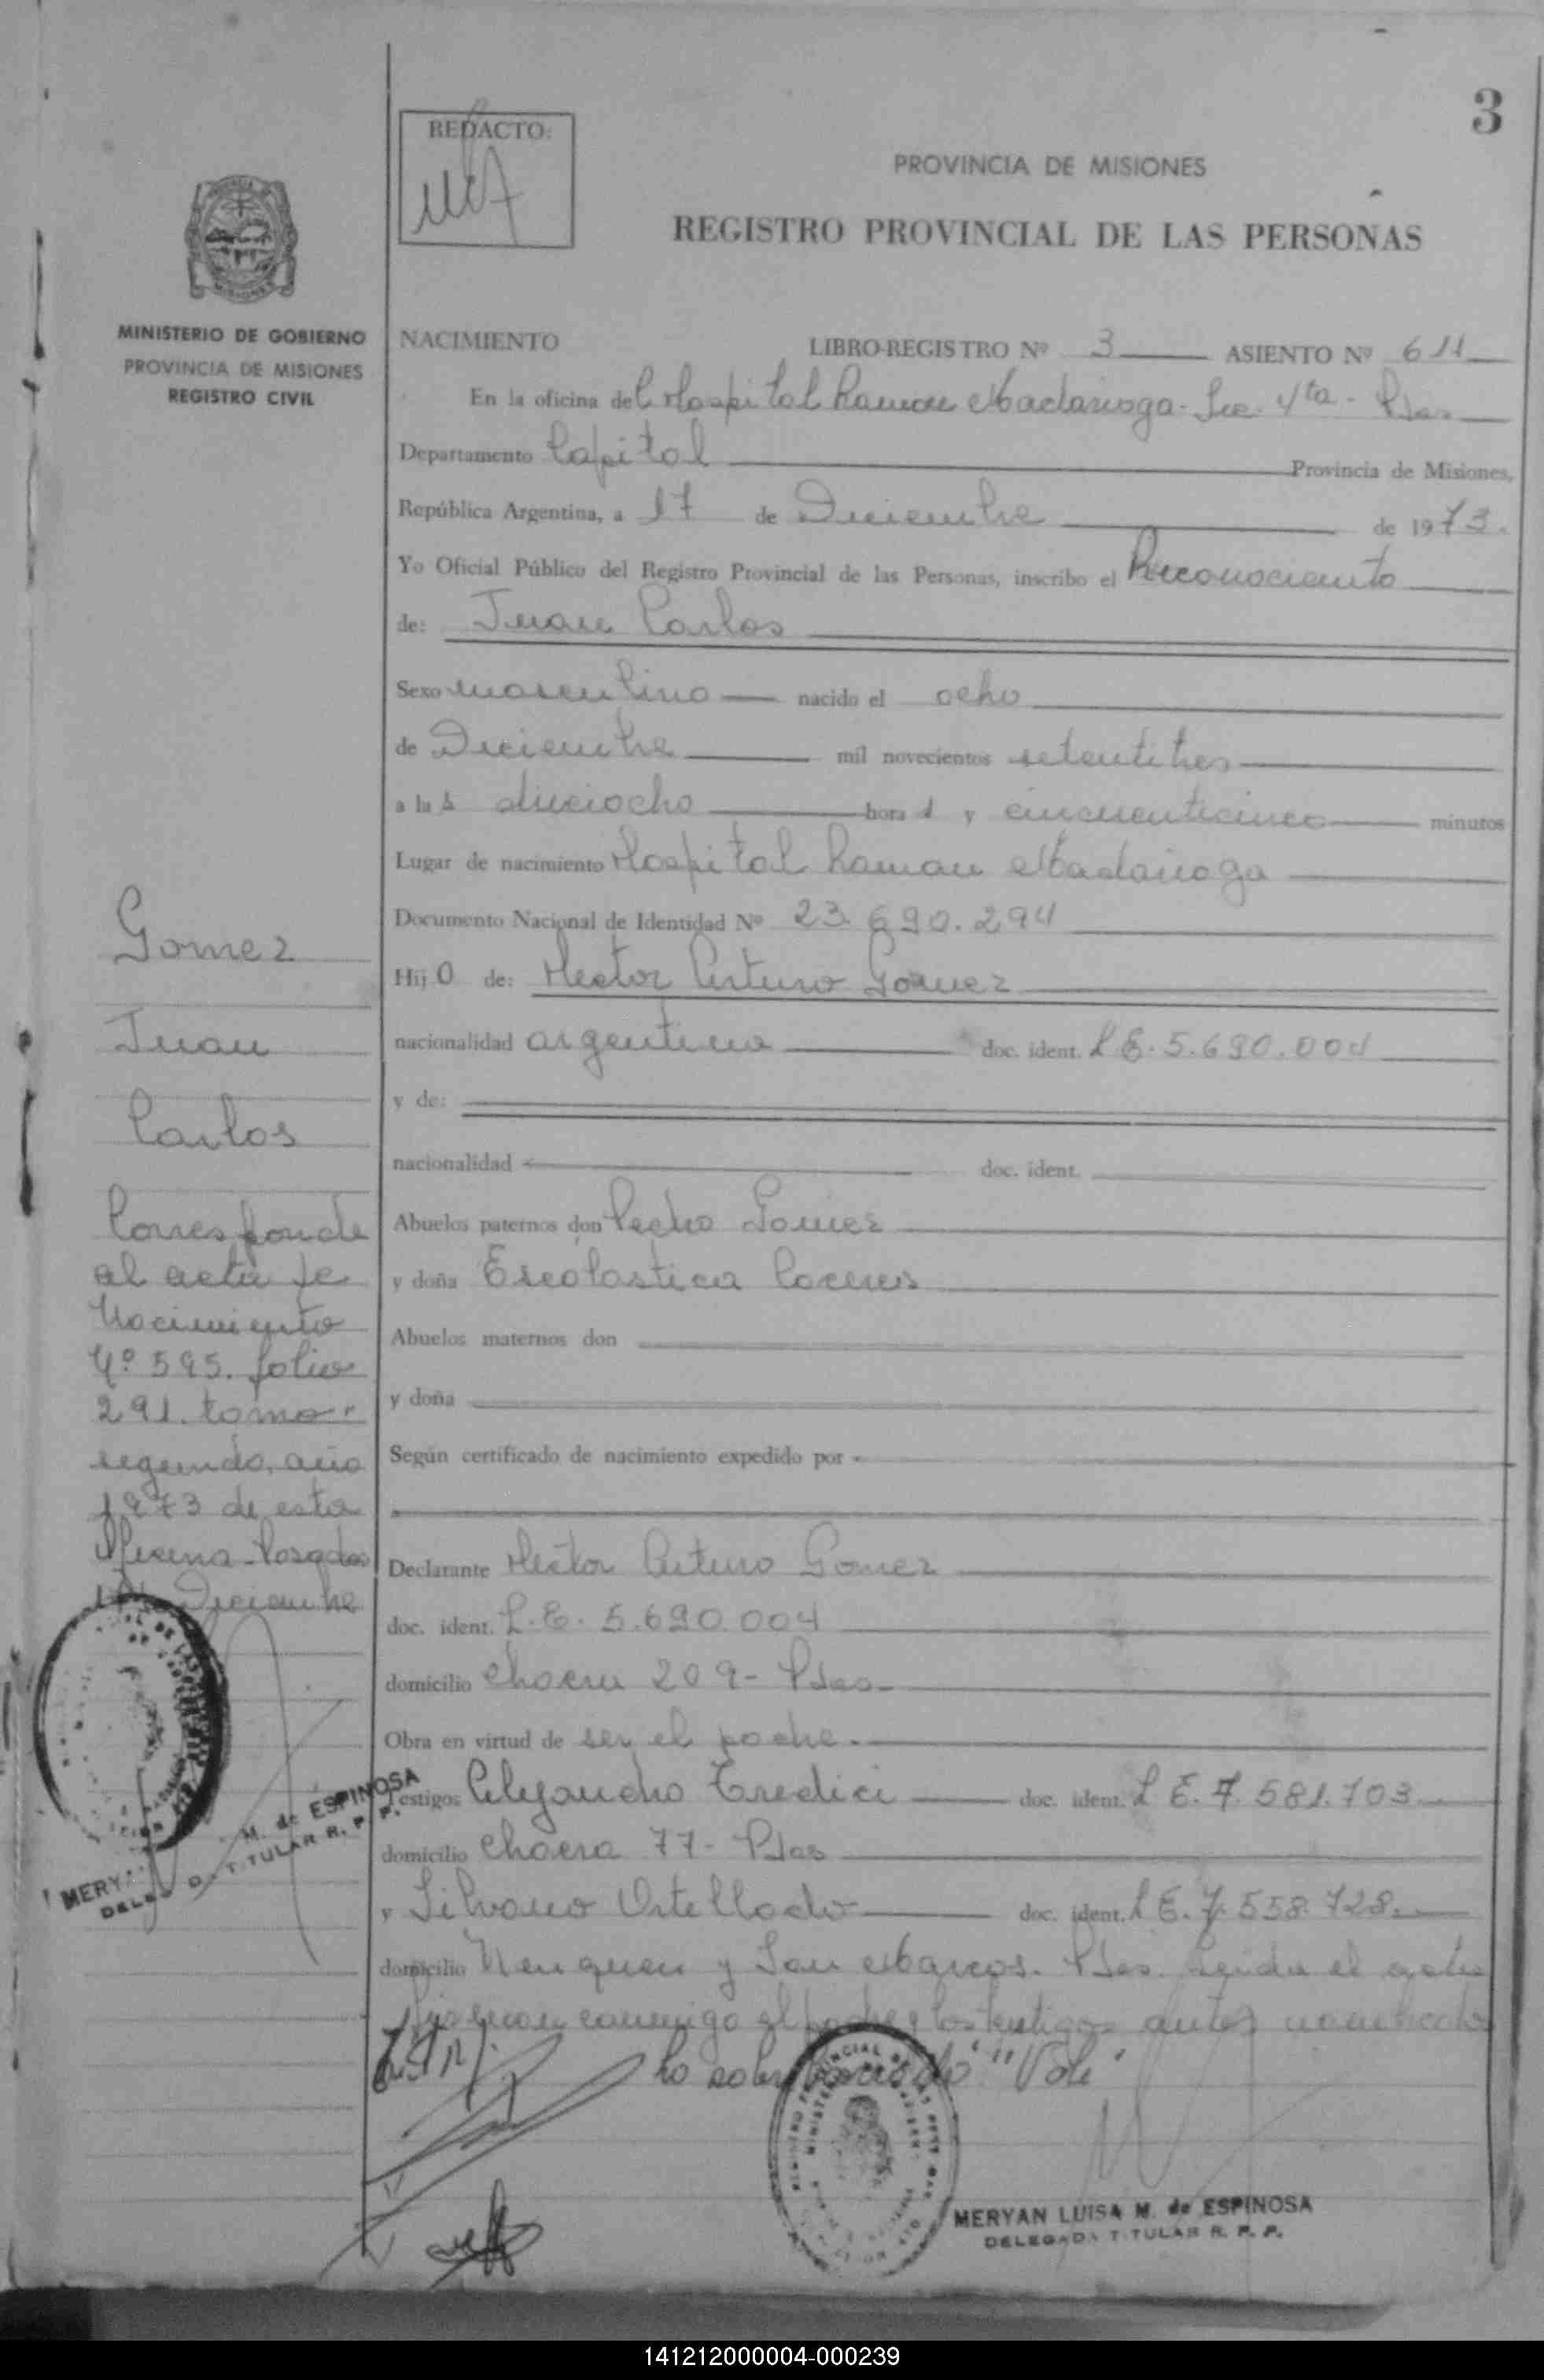 3
REDACTO:
PROVINCIA DE MISIONES
REGISTRO PROVINCIAL DE LAS PERSONAS
MINISTERIO DE GOBIERNO
PROVINCIA DE MISIONES
REGISTRO CIVIL
NACIMIENTO LIBRO-REGISTRO Nº 3 ASIENTO Nº 611
En la oficina del Hospital Ramon Madariaga - Sec. 4ta - Pdas
Departamento Capital Provincia de Misiones,
República Argentina, a 17 de Diciembre de 1973.
Yo Oficial Público del Registro Provincial de las Personas, inscribo el Reconocimiento
de: Juan Carlos
Sexo masculino nacido el ocho
de Diciembre mil novecientos setentitres
a las dieciocho horas y cincuenticinco minutos
Lugar de nacimiento Hospital Ramon Madariaga
Documento Nacional de Identidad Nº 23.690.294
Hijo de: Hector Arturo Gomez
nacionalidad argentina doc. ident. L E. 5.690.004
y de:
nacionalidad doc. ident.
Abuelos paternos don Pedro Gomez
y doña Escolastica
Abuelos maternos don
y doña
Según certificado de nacimiento expedido por
Declarante Hector Arturo Gomez
doc. ident. L.E. 5.690.004
domicilio chacra 209 - Pdas
Obra en virtud de ser el padre.
Testigos Alejandro Tredici doc. ident. L E. 7.581.703
domicilio Chacra 77 - Pdas
y Silvano Ortellado doc. ident. L E. 7.558.728
domicilio Neuquen y San Marcos. Pdas. Leida el acta
firman conmigo el padre y los testigos antes nombrados
lo sobre "Vale"
MERYAN LUISA M. de ESPINOSA
DELEGADA TITULAR R. P. P.
Gomez
Juan
Carlos
Corresponde
al acta de
Nacimiento
Nº 595. folio
291. tomo
segundo, año
1973 de esta
Oficina - Posadas
Diciembre
M. de ESPINOSA
TITULAR R. P. P.
141212000004-000239